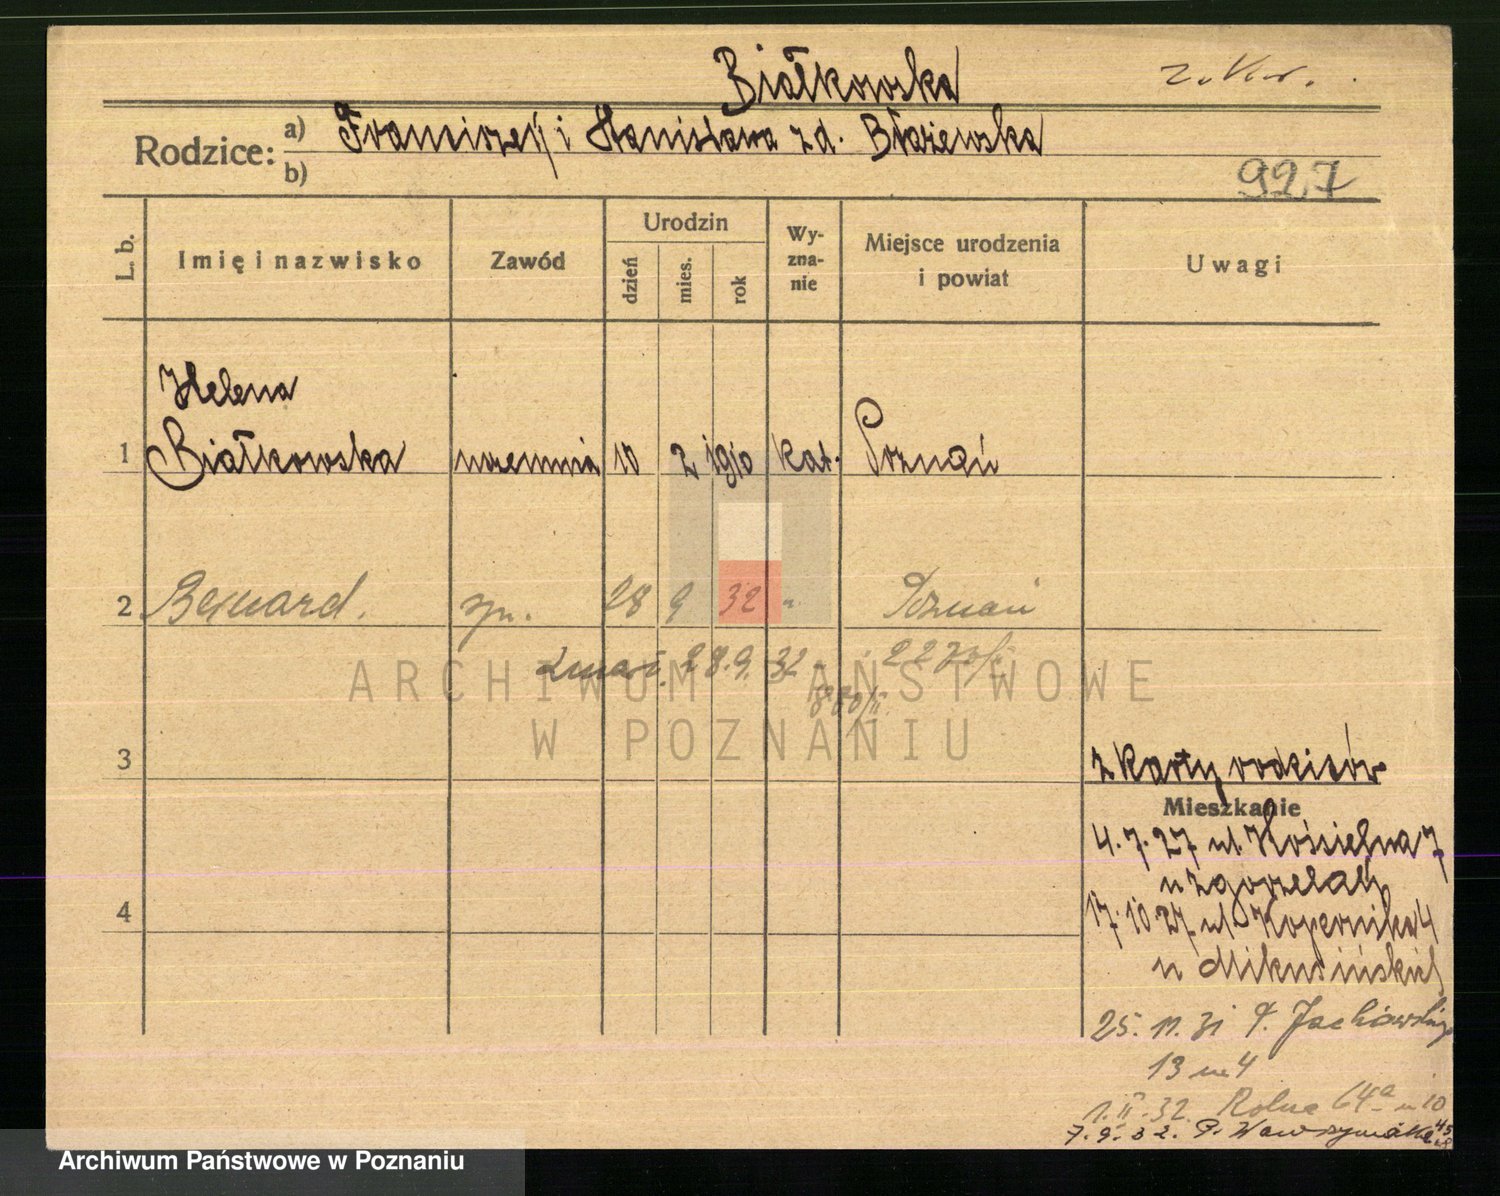 Białkowska
Rodzice: a) Franciszek i Stanisława z d. Błażewska
b)
927
L. b.
Imię i nazwisko
Zawód
Urodzin
dzień
mies.
rok
Wy-
zna-
nie
Miejsce urodzenia
i powiat
Uwagi
Helena
1 Białkowska uczennica 10 2 1910 kat. Poznań
2 Bernard. 28 9 32 Poznań
28.9.32
ARCHIWUM PAŃSTWOWE
W POZNANIU
3
z karty rodziców
Mieszkanie
4.7.27 ul. Kościelna 7
u Zgorzelak
4
17.10.27 ul. Kopernika 4
u Mikusińskich
25.11.31 P. Jackowskiego
13 m 4
1.II.32 Rolna 64a m 10
7.9.32. P. Wawrzyniaka 45
Archiwum Państwowe w Poznaniu